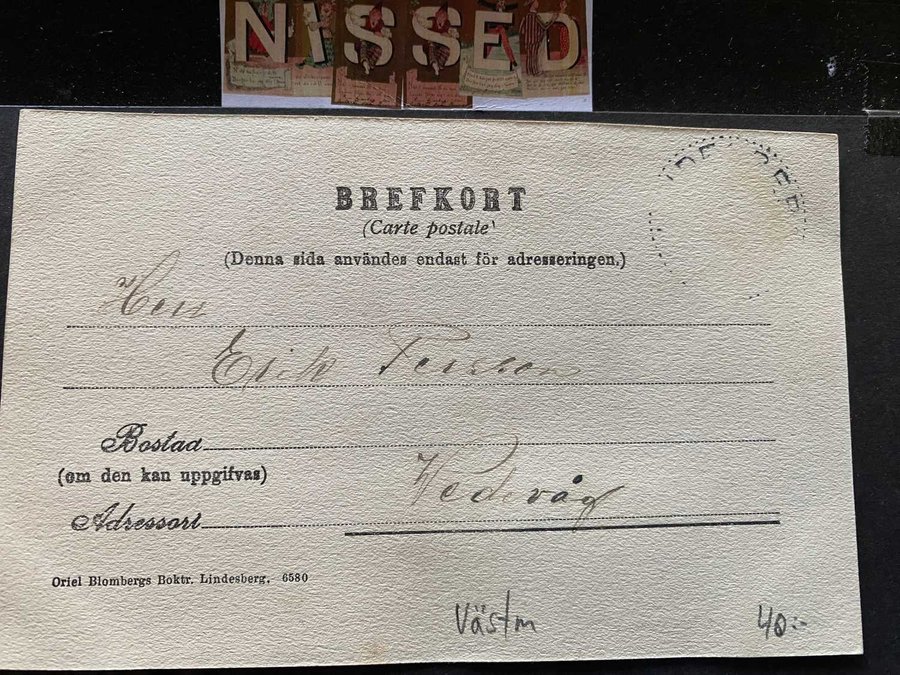 NISSED
BREFKORT
(Carte postale)
(Denna sida användes endast för adresseringen.)
Herr
Erik Persson
Bostad
(om den kan uppgifvas)
Wedevåg
Adressort
Oriel Blombergs Boktr. Lindesberg. 6580
Västm 40:-